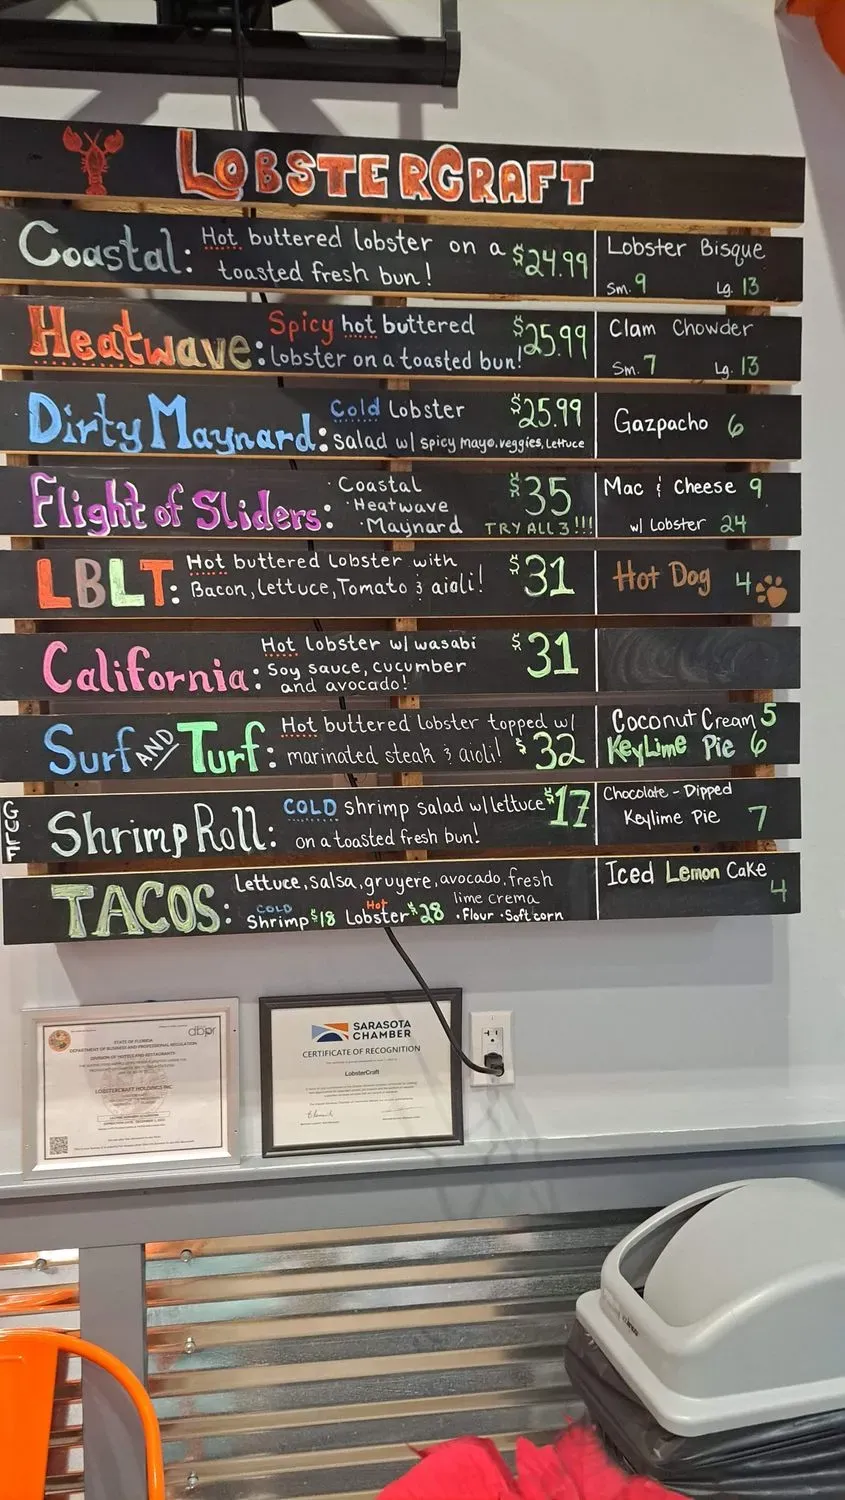 LOBSTERCRAFT
Coastal: Hot buttered lobster on a $24.99
toasted fresh bun!
Lobster Bisque
Sm. 9 Lg. 13
Heatwave: Spicy hot buttered $25.99
lobster on a toasted bun!
Clam Chowder
Sm. 7 Lg. 13
Dirty Maynard: Cold Lobster $25.99
salad w/ spicy mayo, veggies, lettuce
Gazpacho 6
Flight of Sliders: · Coastal $35
· Heatwave
· Maynard TRY ALL 3!!!
Mac & Cheese 9
w/ Lobster 24
LBLT: Hot buttered Lobster with $31
Bacon, lettuce, Tomato & aioli!
Hot Dog 4
California: Hot lobster w/ wasabi $31
Soy sauce, cucumber
and avocado!
Surf AND Turf: Hot buttered lobster topped w/
marinated steak & aioli! $32
Coconut Cream 5
Keylime Pie 6
GULF
Shrimp Roll: COLD shrimp salad w/ lettuce $17
on a toasted fresh bun!
Chocolate-Dipped
Keylime Pie 7
TACOS: Lettuce, salsa, gruyere, avocado, fresh
lime crema
COLD Hot
Shrimp $18 Lobster $28 · Flour · Soft corn
Iced Lemon Cake
4
dbpr
STATE OF FLORIDA
DEPARTMENT OF BUSINESS AND PROFESSIONAL REGULATION
DIVISION OF HOTELS AND RESTAURANTS
LOBSTERCRAFT HOLDINGS INC
SARASOTA
CHAMBER
CERTIFICATE OF RECOGNITION
LobsterCraft